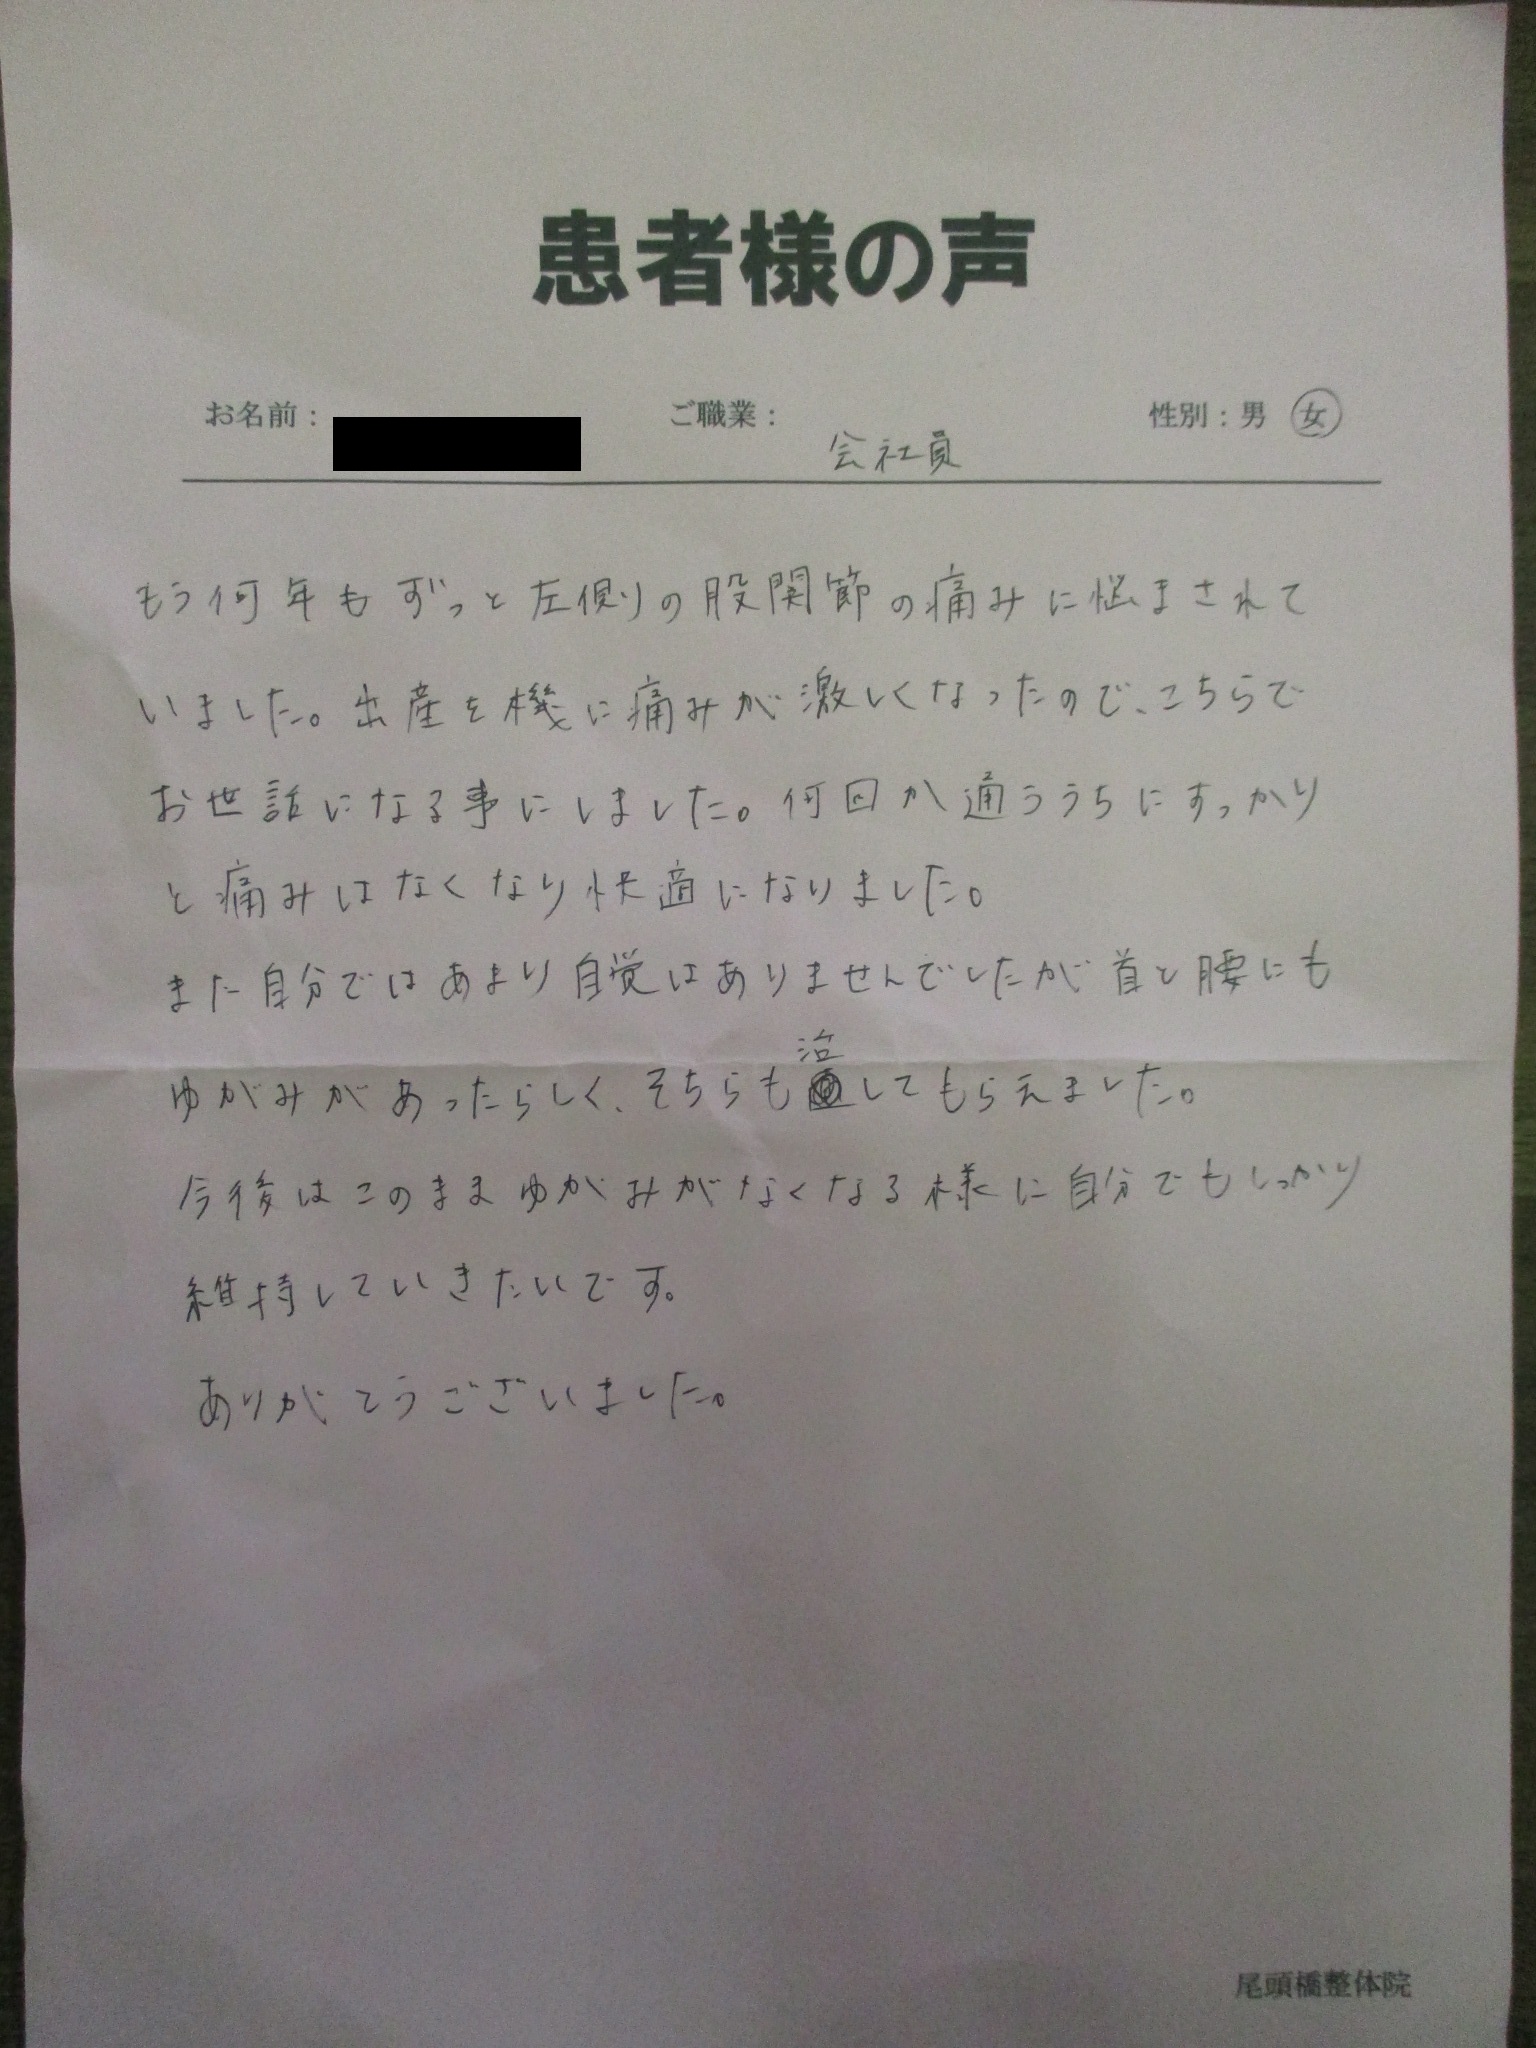 患者様の声
お名前： ご職業： 会社員 性別：男 女
もう何年もずっと左側りの股関節の痛みに悩まされて
いました。出産を機に痛みが激しくなったので、こちらで
お世話になる事にしました。何回か通ううちにすっかり
と痛みはなくなり快適になりました。
また自分ではあまり自覚はありませんでしたが首と腰にも
ゆがみがあったらしく、そちらも治してもらえました。
今後はこのままゆがみがなくなる様に自分でもしっかり
維持していきたいです。
ありがとうございました。
尾頭橋整体院